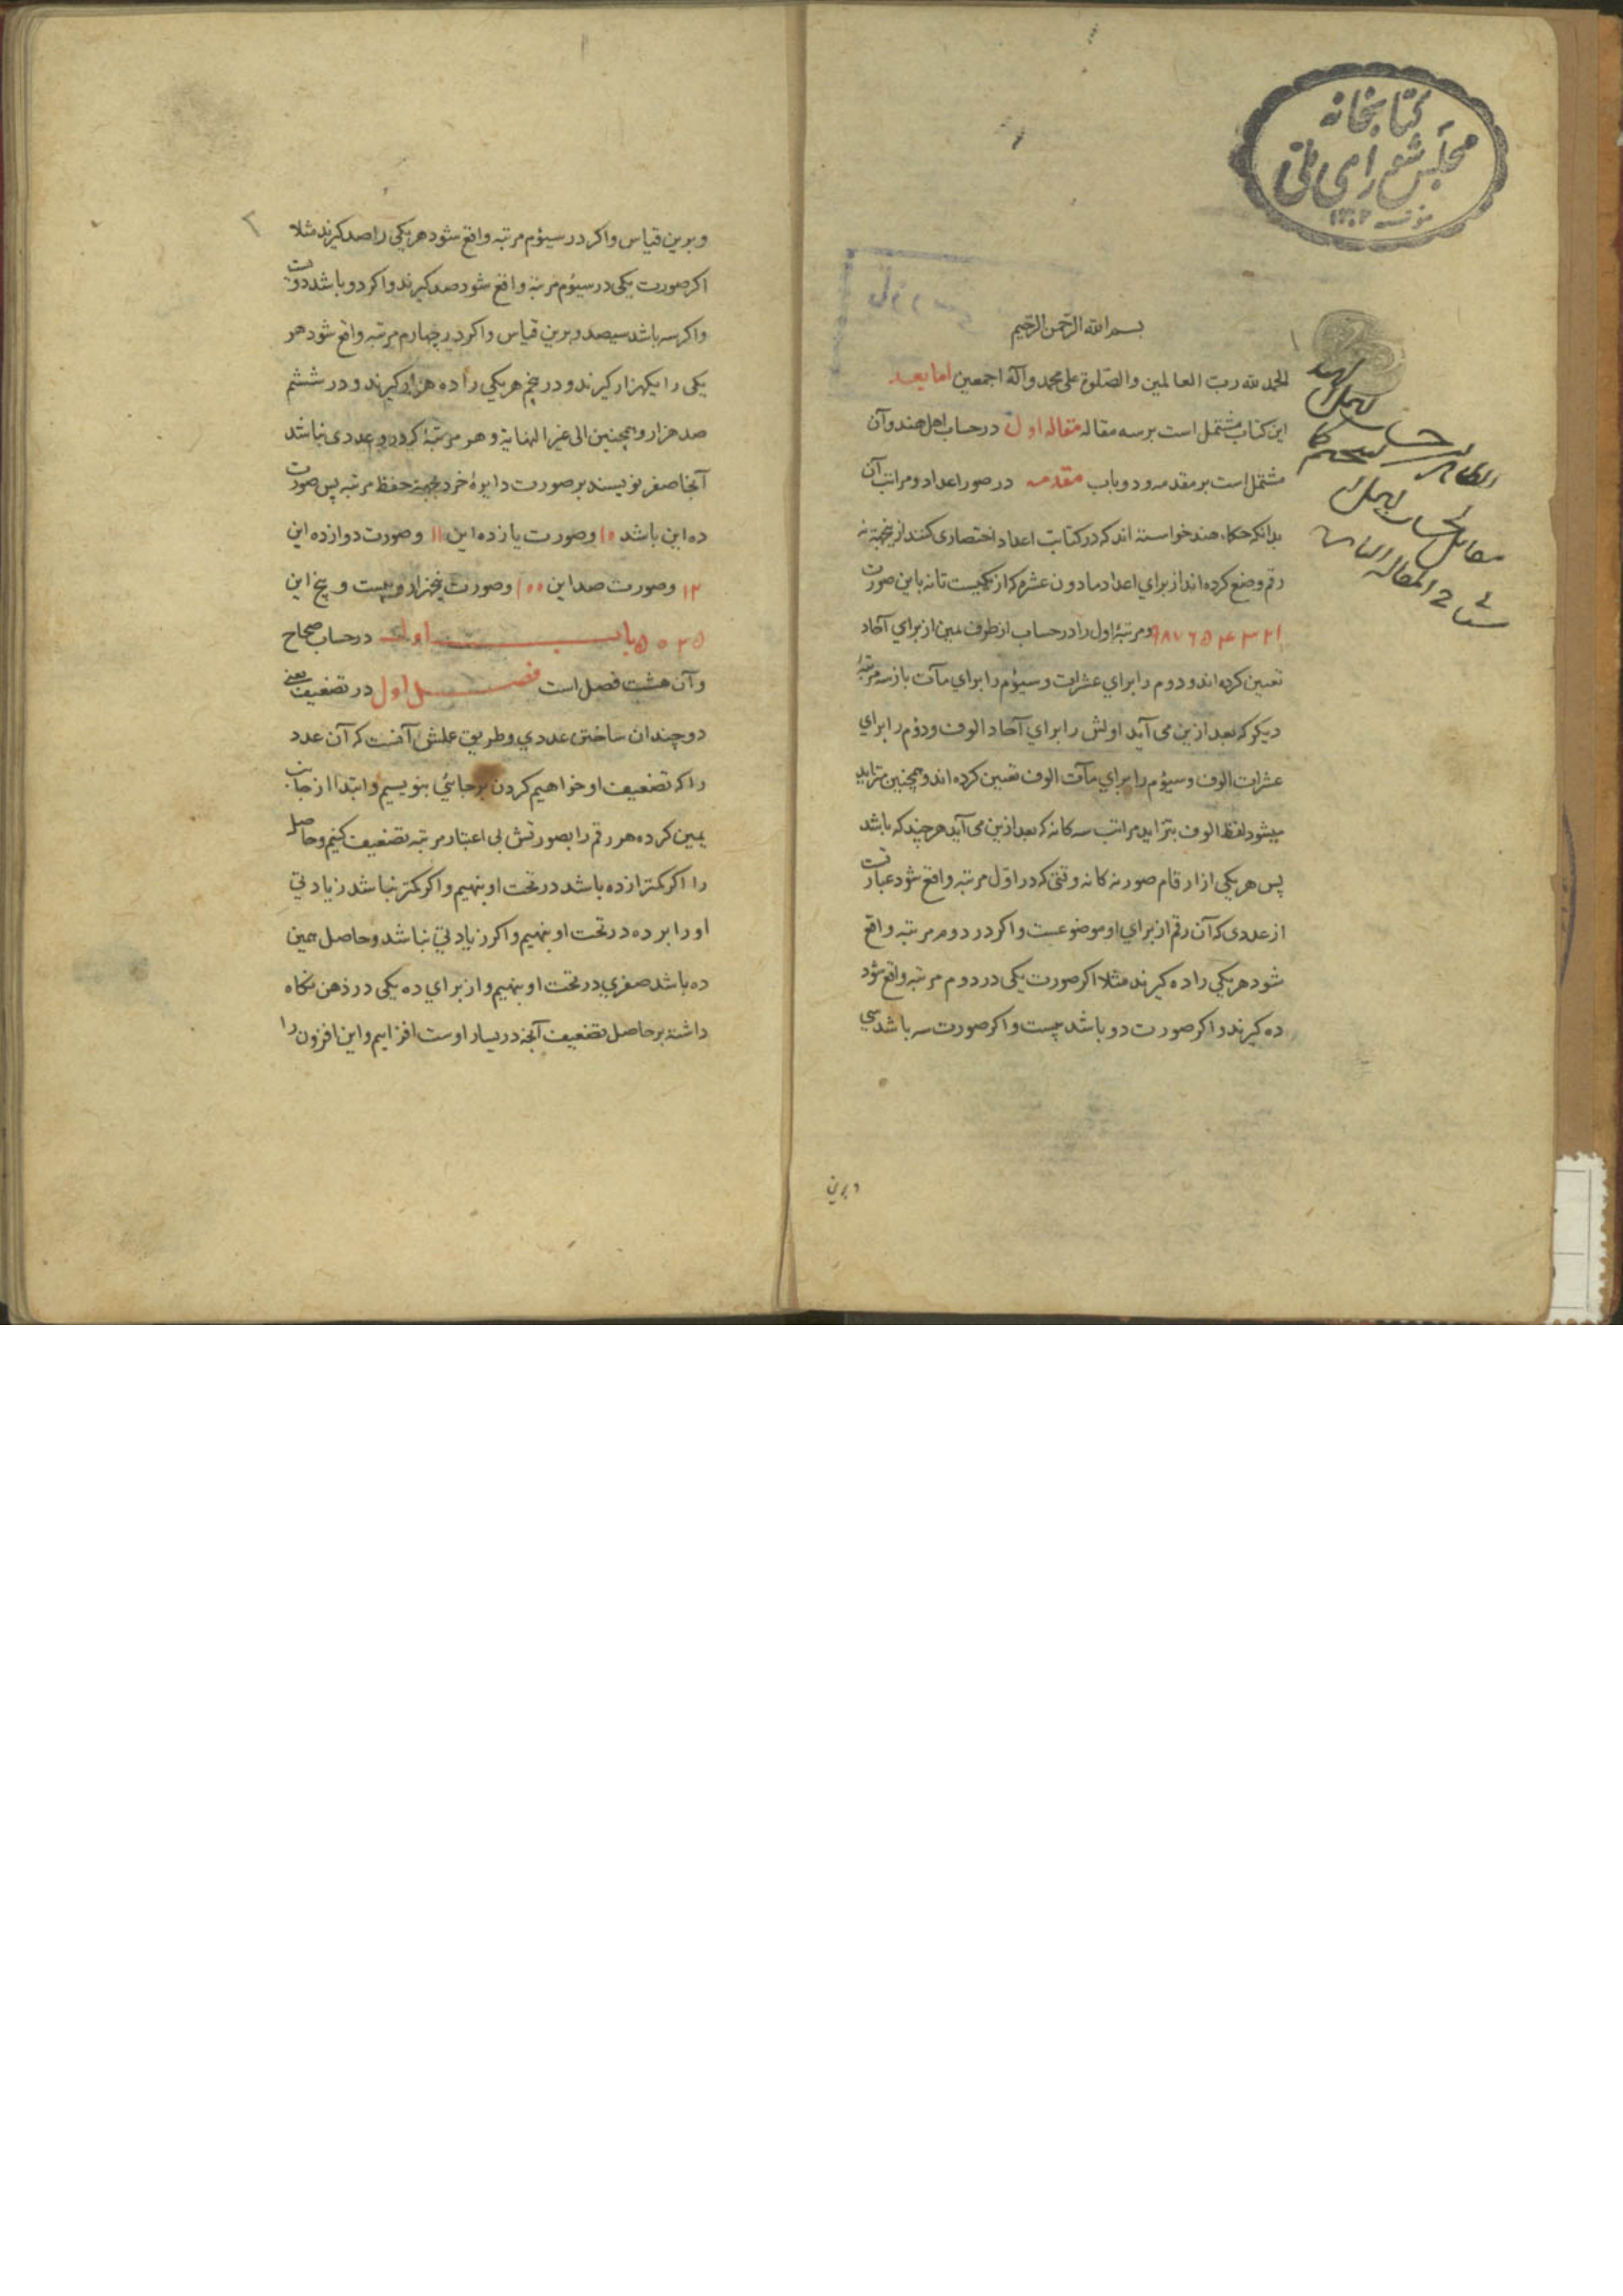 کتابخانه
مجلس شورای ملی
بسم الله الرحمن الرحیم
الحمد لله رب العالمین والصلوة علی محمد وآله اجمعین اما بعد
این کتاب مشتمل است بر سه مقاله مقاله اول در حساب اهل هند و آن
مشتمل است بر مقدمه و دو باب مقدمه در صور اعداد و مراتب آن
بدانکه حکماء هند خواسته اند که در کتابت اعداد اختصاری کنند ازینجهة نه
رقم وضع کرده اند از برای اعداد مادون عشره که از یکیست تا نه باین صورت
۱ ۲ ۳ ۴ ۵ ۶ ۷ ۸ ۹ و مرتبهٔ اول را در حساب از طرف یمین از برای آحاد
تعیین کرده اند و دوم را برای عشرات و سیؤم را برای مآت باز سه مرتبهٔ
دیکر که بعد ازین می آید اولش را برای آحاد الوف و دوم را برای
عشرات الوف و سیؤم را برای مآت الوف تعیین کرده اند و همچنین متزاید
میشود لفظ الوف بتزاید مراتب سه کانه که بعد ازین می آید هر چند که باشد
پس هر یکی از ارقام صور نه کانه وقتی که در اول مرتبه واقع شود عبارتست
از عددی که آن رقم از برای او موضوعست و اکر در دوم مرتبه واقع
شود هر یکی را ده کیرند مثلا اکر صورت یکی در دوم مرتبه واقع شود
ده کیرند و اکر صورت دو باشد بیست و اکر صورت سه باشد سی
و برین
۲
و برین قیاس و اکر در سیؤم مرتبه واقع شود هر یکی را صد کیرند مثلا
اکر صورت یکی در سیؤم مرتبه واقع شود صد کیرند و اکر دو باشد دویست
و اکر سه باشد سیصد و برین قیاس و اکر در چهارم مرتبه واقع شود هر
یکی را یکهزار کیرند و در پنجم هر یکی را ده هزار کیرند و در ششم
صد هزار و همچنین الی غیر النهایة و هر مرتبهٔ که درو عددی نباشد
آنجا صفر نویسند بر صورت دایرهٔ خرد بجهة حفظ مرتبه پس صورت
ده این باشد ۱۰ و صورت یازده این ۱۱ و صورت دوازده این
۱۲ و صورت صد این ۱۰۰ و صورت پنجهزار و بیست و پنج این
۵۰۲۵ باب اول در حساب صحاح
و آن هشت فصل است فصل اول در تضعیف یعنی
دو چندان ساختن عددی و طریق عملش آنست که آن عدد
را که تضعیف او خواهیم کردن بر جائی بنویسیم و ابتدا از جانب
یمین کرده هر رقم را بصورتش بی اعتبار مرتبه تضعیف کنیم و حاصل
را اکر کمتر از ده باشد در تحت او بنهیم و اکر کمتر نباشد زیادتی
او را بر ده در تحت او بنهیم و اکر زیادتی نباشد و حاصل همین
ده باشد صفری در تحت او بنهیم و از برای ده یکی در ذهن نکاه
داشته بر حاصل تضعیف آنچه در یسار اوست افزاییم و این افزون را